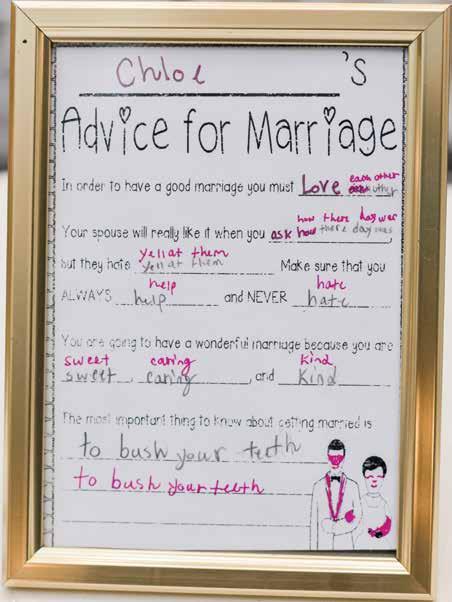 Chloe 's
Advice for Marriage
each other
In order to have a good marriage you must Love other
how there day was
Your spouse will really like it when you ask how there day was,
yell at them
but they hate yell at them Make sure that you
help hate
ALWAYS help and NEVER hate
You are going to have a wonderful marriage because you are
sweet caring kind
sweet, caring, and kind
The most important thing to know about getting married is
to bush your teeth
to bush your teeth